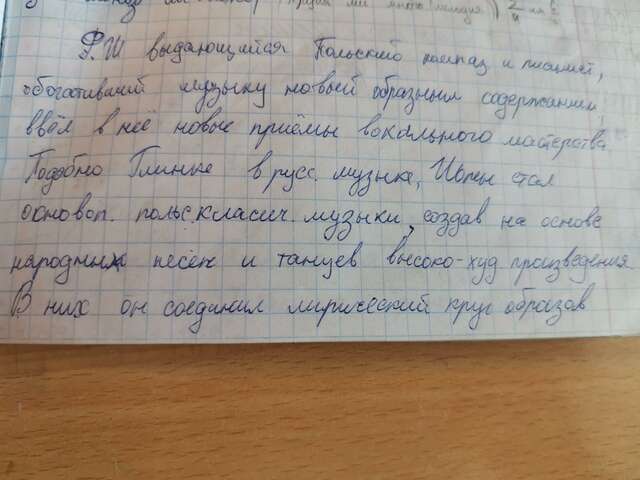 Ф.Ш выдающийся Польский композ и пианист,
обогативший музыку новый образным содержанием,
ввёл в неё новые приёмы вокального мастерства
Подобно Глинке в русс. музыке, Шопен стал
основоп. польс.класич. музыки, создав на основе
народных песен и танцев высоко-худ произведения
В них он соединил лирический круг образов